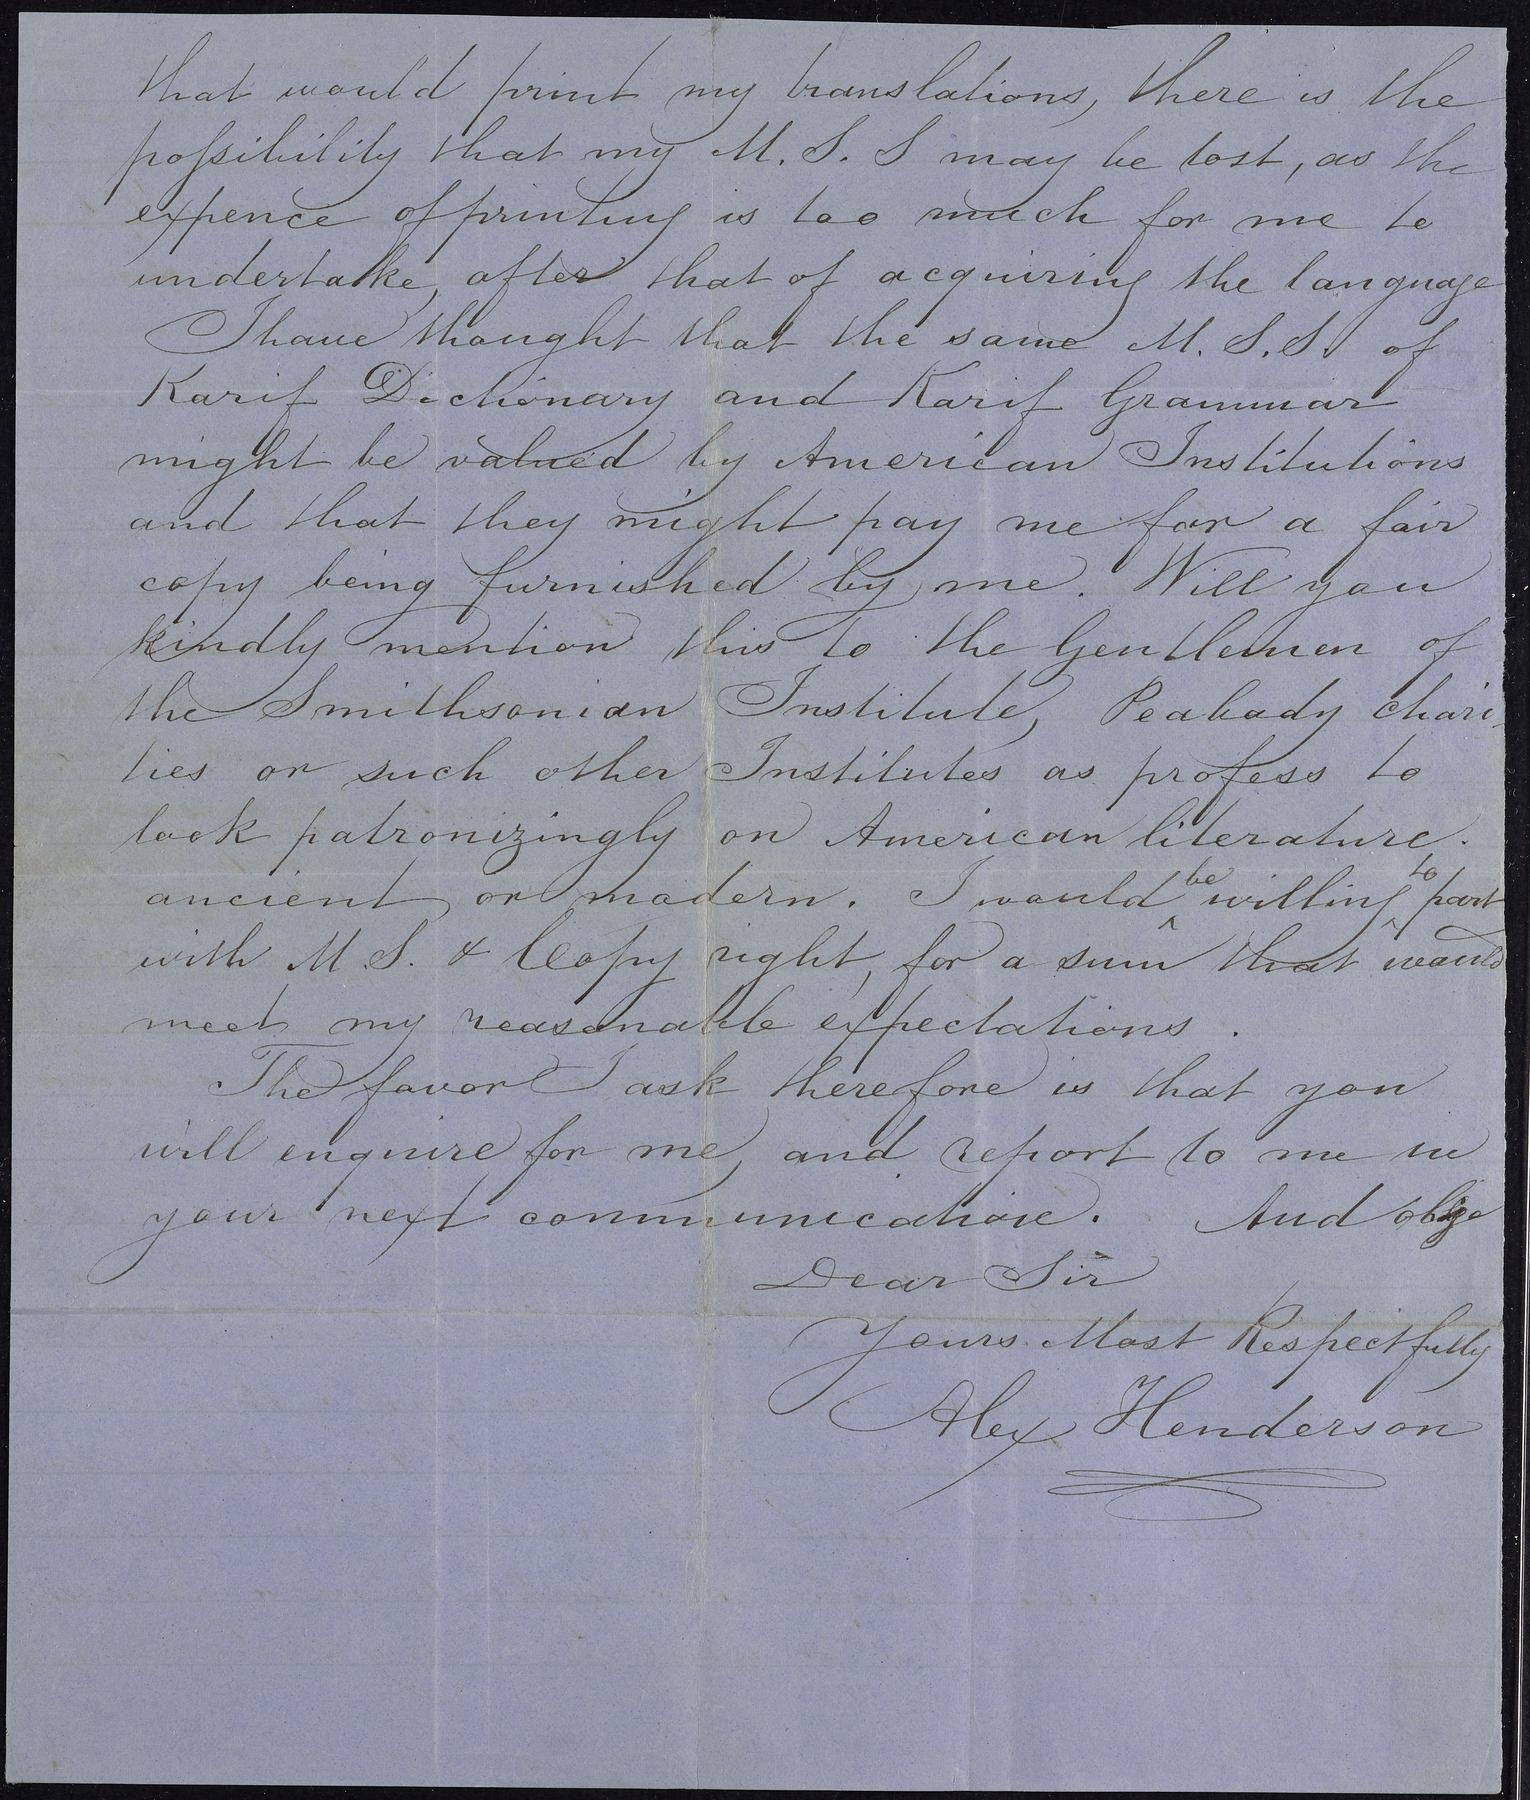 that would print my translations, there is the
possibility that my M. S. S may be lost, as the
expence of printing is too much for me to
undertake, after that of acquiring the language
I have thought that the same M. S. S. of
Karif Dictionary and Karif Grammar
might be valued by American Institutions
and that they might pay me for a fair
copy being furnished by me. Will you
kindly mention this to the Gentlemen of
the Smithsonian Institute, Peabody chari-
ties or such other Institutes as profess to
look patronizingly on American literature.
ancient or modern. I would be willing to part
with M. S. & Copy right, for a sum that would
meet my reasonable expectations.
The favor I ask therefore is that you
will enquire for me, and report to me in
your next communication. And oblige
Dear Sir
Yours Most Respectfully
Alex Henderson